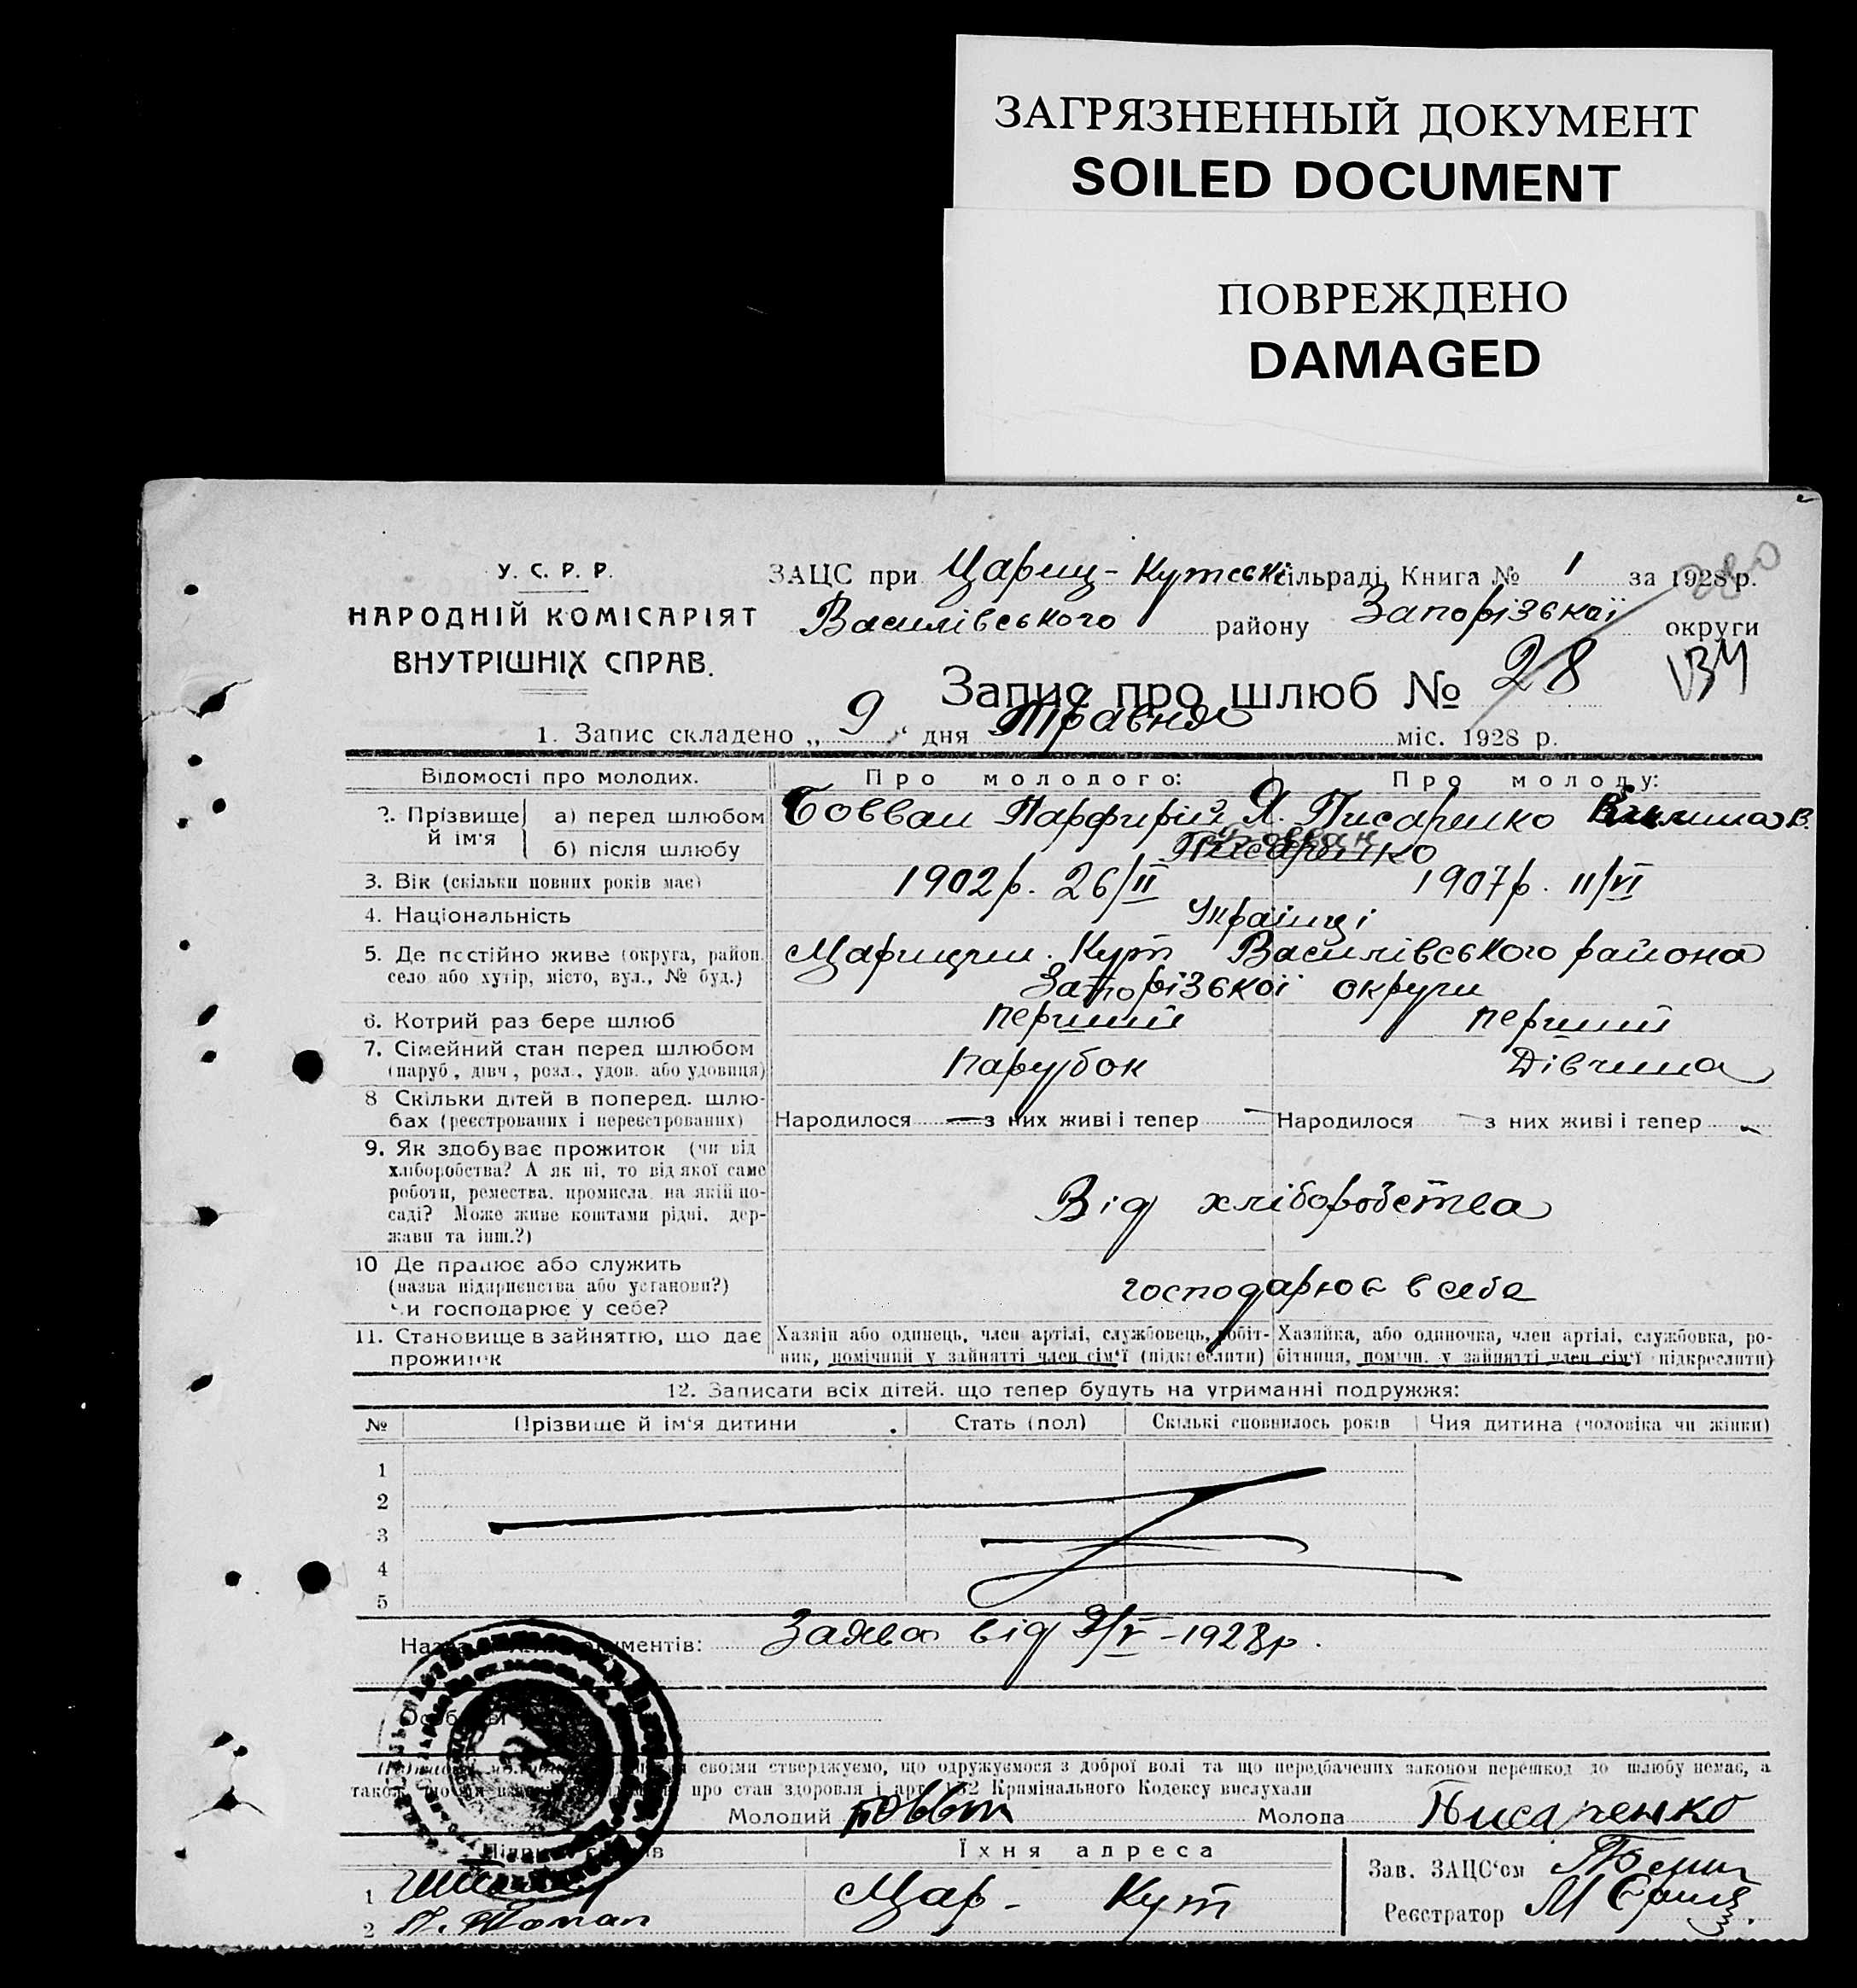 ЗАГРЯЗНЕННЫЙ ДОКУМЕНТ
SOILED DOCUMENT
ПОВРЕЖДЕНО
DAMAGED
У. С. Р. Р.
НАРОДНІЙ КОМІСАРІЯТ
ВНУТРІШНІХ СПРАВ.
ЗАЦС при Цариц-Кутській сільраді, Книга № 1 за 1928 р.
Василівського району Запорізької округи
Запис про шлюб № 28
1. Запис складено „9“ дня Травня міс. 1928 р.
Відомості про молодих. Про молодого: Про молоду:
2. Прізвище й ім'я а) перед шлюбом Бовван Парфирій Я. Писаренко В.
б) після шлюбу
3. Вік (скільки повних років має) 1902 р. 26/II 1907 р. 11/VI
4. Національність Українці
5. Де постійно живе (округа, район, Царицин. Кут Василівського района
село або хутір, місто, вул., № буд.) Запорізької округи
6. Котрий раз бере шлюб перший перший
7. Сімейний стан перед шлюбом
(паруб., дівч., розл., удов. або удовиця) Парубок Дівчина
8 Скільки дітей в поперед. шлю-
бах (реєстрованих і нереєстрованих) Народилося — з них живі і тепер Народилося — з них живі і тепер
9. Як здобуває прожиток (чи від
хліборобства? А як ні, то від якої саме
роботи, ремества, промисла, на якій по-
саді? Може живе коштами рідні, дер-
жави та інш.?)
Від хліборобства
10 Де працює або служить
(назва підприємства або установи?)
чи господарює у себе?
господарює в себе
11. Становище в зайняттю, що дає
прожиток
Хазяїн або одинець, член артілі, службовець, робіт-
ник, помічний у зайнятті член сім'ї (підкреслити)
Хазяйка, або одиночка, член артілі, службовка, ро-
бітниця, помічн. у зайнятті член сім'ї (підкреслити)
12. Записати всіх дітей, що тепер будуть на утриманні подружжя:
№ Прізвище й ім'я дитини Стать (пол) Скількі сповнилось років Чия дитина (чоловіка чи жінки)
1
2
3
4
5
Заява від 9/V-1928 р.
своїми стверджуємо, що одружуємося з доброї волі та що передбачених законом перешкод до шлюбу немає, а
також про стан здоровля і арт. 152 Кримінального Кодексу вислухали
Молодий Бовван Молода Писаренко
Їхня адреса
1 Цар- Кут
2
Зав. ЗАЦС'ом
Реєстратор